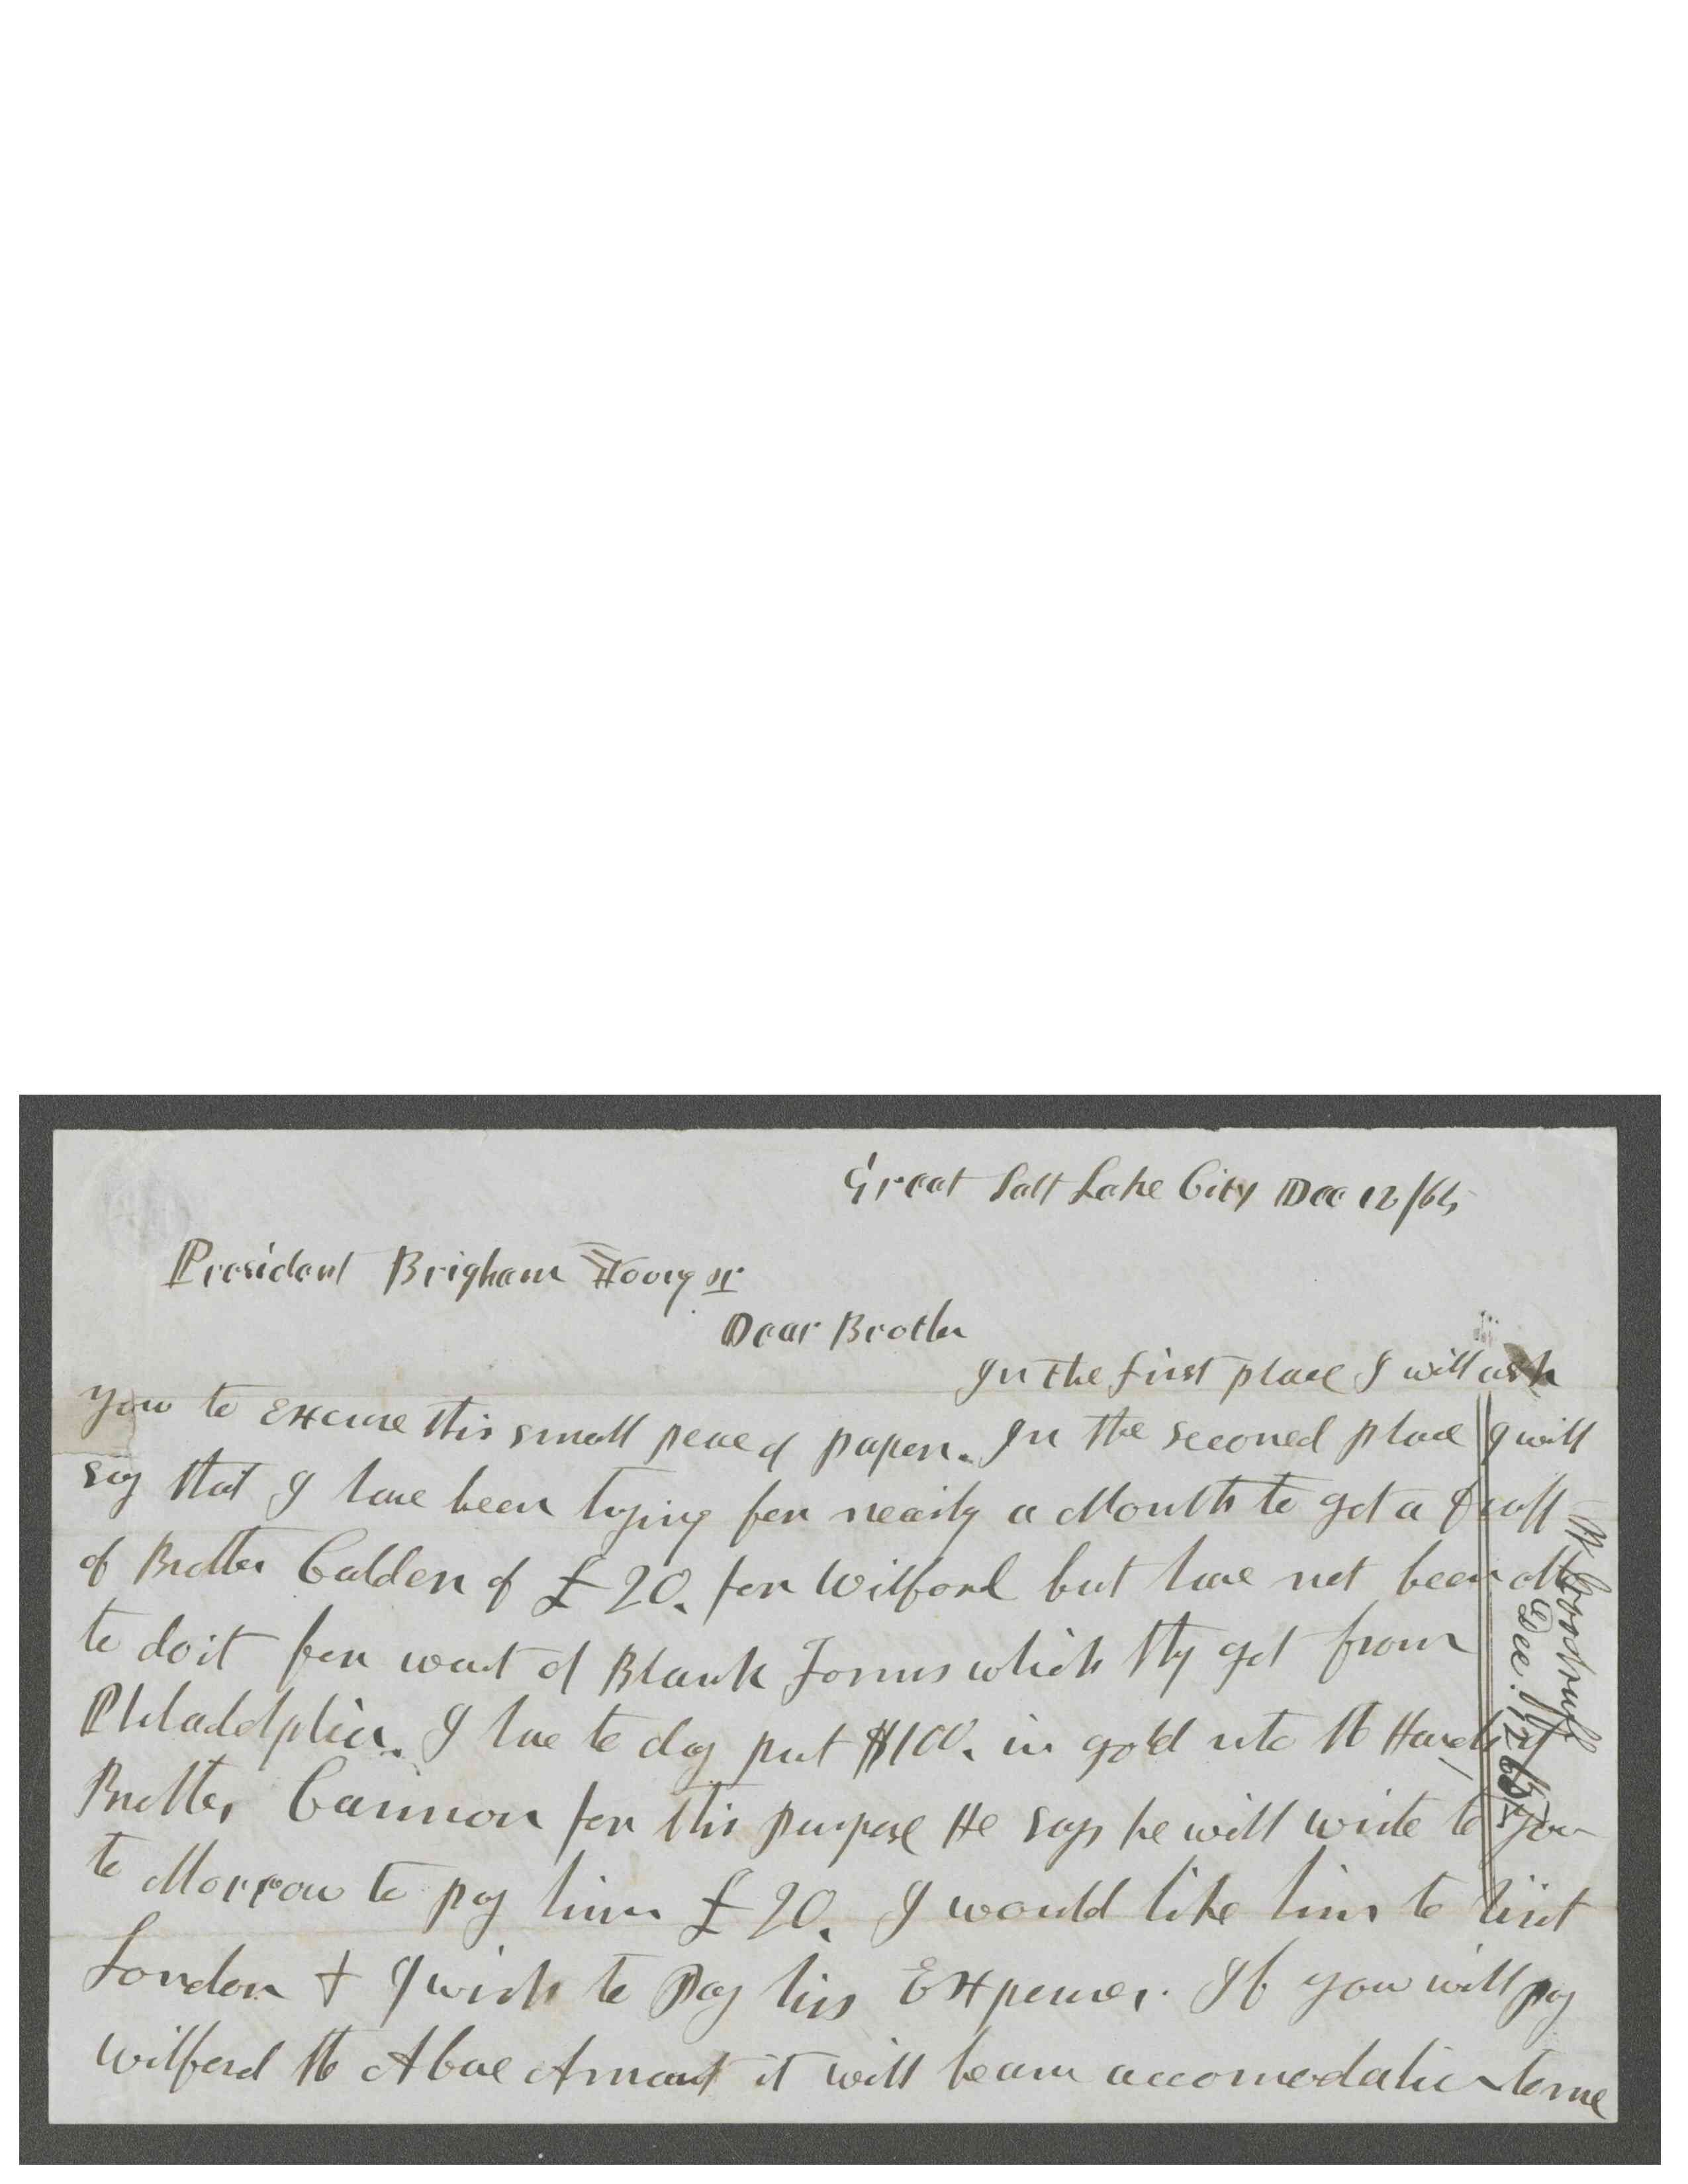 Great Salt Lake City Dec 12/65
President Brigham Young jr
Dear Brother
In the first place I will ask
you to Excuse this small peace of paper. In the seconed place I will
say that I have been trying for nearly a Month to get a Draft
of Brother Calder of £20. for Wilford but have not been able
to do it for want of Blank Forms which they get from
Philadelphia. I have to day put $100. in gold into the Hands of
Brother Cannon for this purpose He says he will write to you
to Morrow to pay him £20. I would like him to visit
London & I wish to Pay his Expenses. If you will pay
Wilford the Above Amount it will be an accomodation to me
W. Woodruff
Dec. 12 65